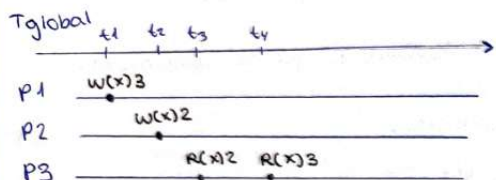 Tglobal
t1 t2 t3 t4
W(x)3
P1
W(x)2
P2
R(x)2 R(x)3
P3